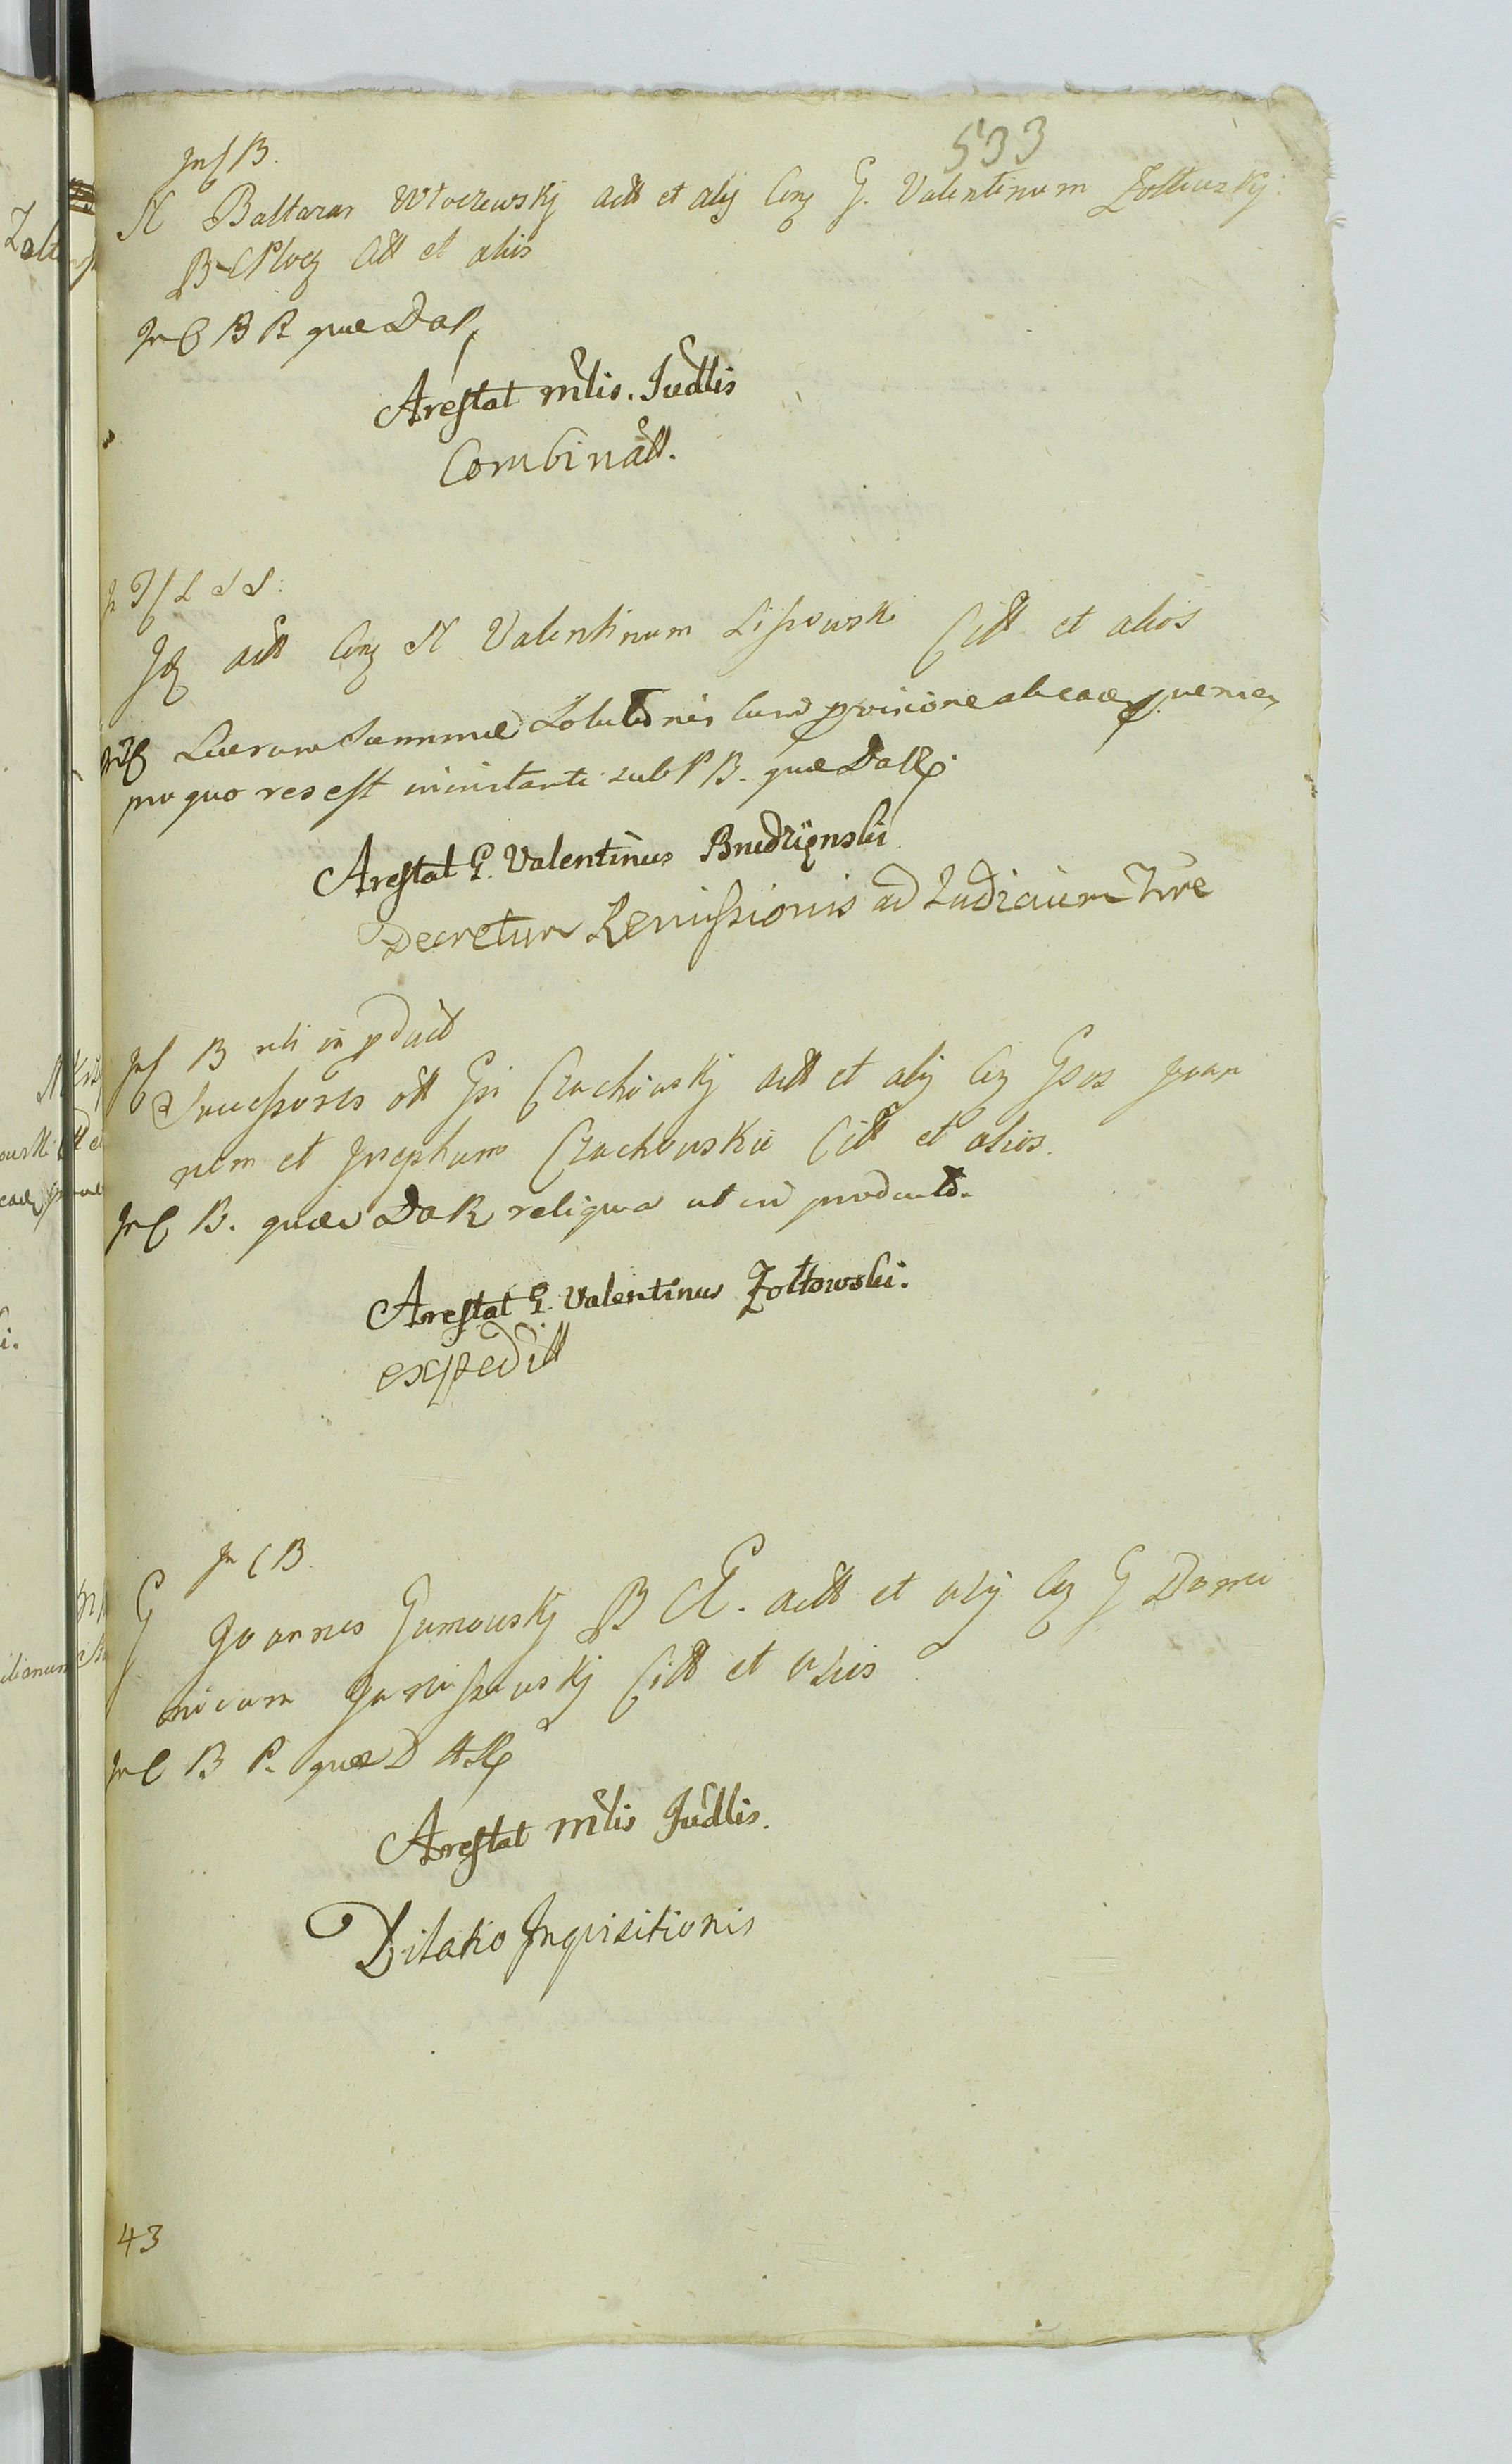 533
In f B.
N Baltazar Wtoczewskj actt et alij Con G. Valentinum Zołtowskj
B C Plocz Citt et alios
In C B R quæ Da R
Arestat mlis. Judlis
Combinatt.
Id actt Con N Valentinum Lissowski Citt et alios
Summæ Solutionis cum provisione ab eade proveniens
pro quo res est in instanti sub P B. quæ Da R.
Arestat G. Valentinus Brudzÿnski
Decretum Remissionis ad Judicium Trre
In f B uti in pduct
Successores ott Gsi Czachowskj actt et alij Con Gsos Joan
nem et Josephum Czachowskie Citt et alios.
In C B. quæ Da R reliqua ut in producto.
Arestat G. Valentinus Zołtowski.
expeditt
In C B.
G Joannes Gumowskj B C. actt et alij Con G Domi
nicum Janiszewskj Citt et alios
In C B P. quæ D A R
Arestat mlis Judlis.
Dilatio Inquisitionis
43